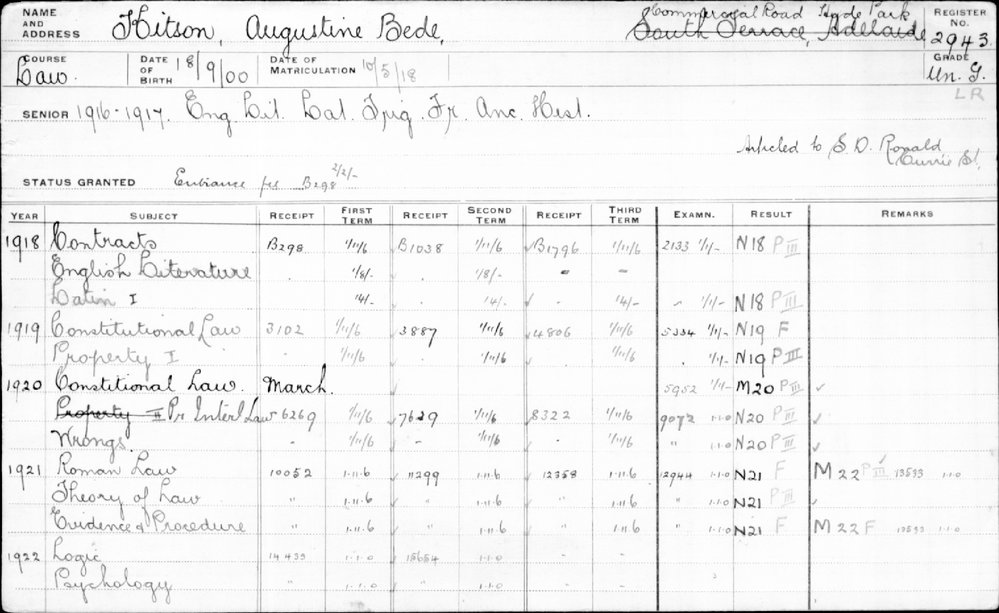 NAME AND ADDRESS Kitson, Augustine Bede, Commercial Road Hyde Park South Terrace, Adelaide REGISTER NO. 2943
COURSE Law. DATE OF BIRTH 18/9/00 DATE OF MATRICULATION 10/5/18 GRADE Un. G.
LR
SENIOR 1916-1917. Eng. Lit. Lat. Trig. Fr. Anc. Hist.
Articled to S. D. Ronald
Currie St.
STATUS GRANTED Entrance fee B298 2/2/-
YEAR SUBJECT RECEIPT FIRST TERM RECEIPT SECOND TERM RECEIPT THIRD TERM EXAMN. RESULT REMARKS
1918 Contracts B298 1/11/6 B1038 1/11/6 B1796 1/11/6 2133 1/1/- N18 P III
English Literature . 1/8/- . 1/8/- - -
Latin I . 14/- 14/- ✓ - 14/- - 1/1/- N18 P III
1919 Constitutional Law 3102 1/11/6 ✓ 3887 1/11/6 ✓ 4806 1/11/6 5334 1/1/- N19 F
Property I 1/11/6 1/11/6 1/11/6 . 1/1/- N19 P III
1920 Constitional Law. March. 5952 1/1/- M20 P III ✓
Property II Pr Interl Law 56269 1/11/6 ✓ 7629 1/11/6 ✓ 8322 1/11/6 9072 1-1-0 N20 P III ✓
Wrongs. - 1/11/6 ✓ - 1/11/6 ✓ - 1/11/6 " 1-1-0 N20 P III ✓
1921 Roman Law 10052 1-11-6 11299 1-11-6 12358 1-11-6 12944 1-1-0 N21 F M22 P III ✓ 13533 1-1-0
Theory of Law " 1-11-6 ✓ " 1-11-6 ✓ " 1-11-6 " 1-1-0 N21 P III ✓
Evidence & Procedure " 1-11-6 ✓ " 1-11-6 ✓ " 1-11-6 " 1-1-0 N21 F M22 F 13533 1-1-0
1922 Logic 14433 1-1-0 15654 1-1-0
Psychology " 1-1-0 " 1-1-0